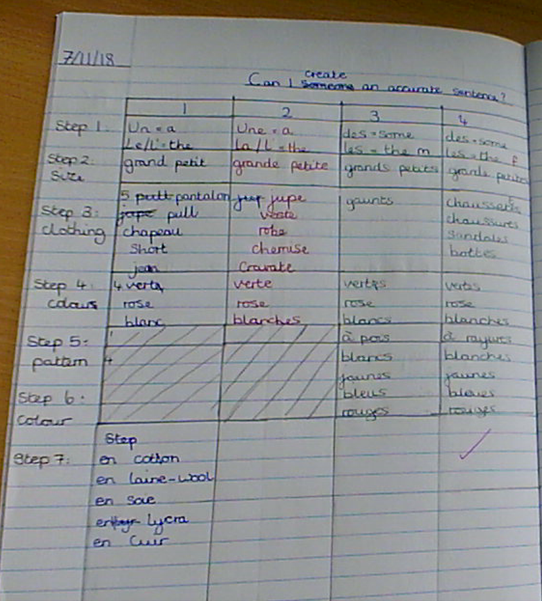 7/11/18
create
Can I someone an accurate sentence?
1 2 3 4
Step 1: Un = a Une = a des = some des = some
Le/L' = the La/L' = the les = the m les = the f
Step 2: grand petit grande petite grands petits grands petites
Size
5 pull pantalon jup jupe gaunts chaussettes
Step 3: jupe pull veste chaussures
clothing chapeau robe sandales
short chemise bottes
jean Cravate
Step 4: 4 verta verte verts vertes
colours rose rose rose rose
blanc blanches blancs blanches
Step 5: à pois à rayures
pattern blancs blanches
jaunes jaunes
Step 6: bleus bleues
colour rouges rouges
Step
Step 7: en cotton
en laine-wool
en soie
en Lycra
en Cuir